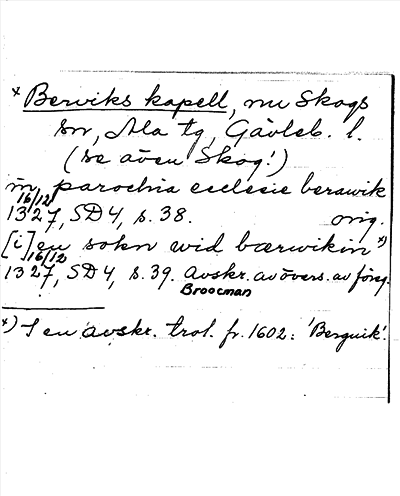 * Berviks kapell, nu Skogs
sn, Ala tg, Gävleb. l.
(se även Skog!)
in parochia ecclesie berawik
16/12
1327, SD 4, s. 38. orig.
[i] en sokn wid bærwikin *)
16/12
1327, SD 4, s. 39. Avskr. av övers. av föreg.
Broocman
*) I en avskr. trol. fr. 1602: 'Berguik'.